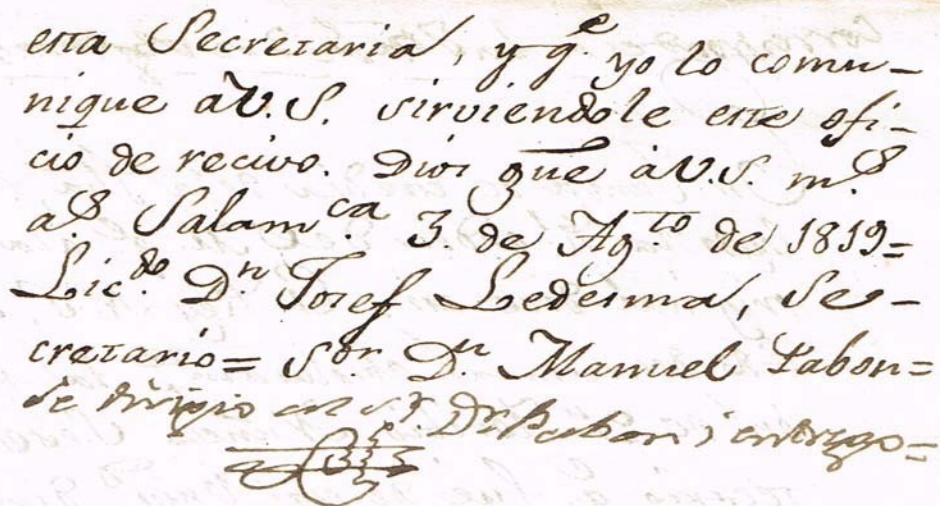 esta Secretaria, y q.e yo lo comu-
nique à V.S. sirviendole este ofi-
cio de recivo. Dios gue à V.S. m.s
a.s Salam.ca 3. de Ag.to de 1819=
Lic.do D.n Josef Ledesma, Se-
cretario= S.or D.n Manuel Pabon=
se dirigio al S.r D.r Pabon i entrego=